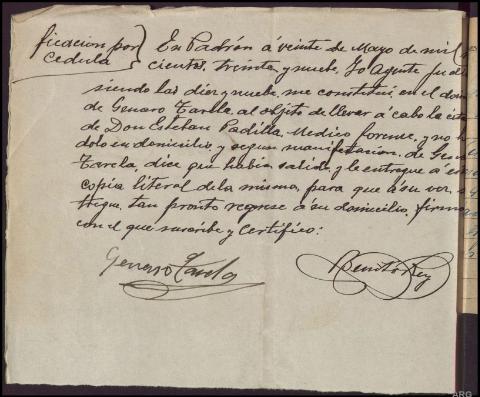 ficacion por
Cedula
En Padrón á veinte de Mayo de mil
cientos treinta y nueve. Yo Agente
siendo las diez y nueve, me constituí en el dom
de Genaro Tarela, al objeto de llevar á cabo la
de Don Esteban Padilla, Medico forense, y no
dolo en domicilio y segun manifestacion de Gen
Tarela, dice que habia salido y le entregue á
copia literal de la misma, para que á su vez,
tregue, tan pronto regrese á su domicilio, firma
con el que suscribe y Certifico:
Genaro Tarela
Benito Rey
ARG